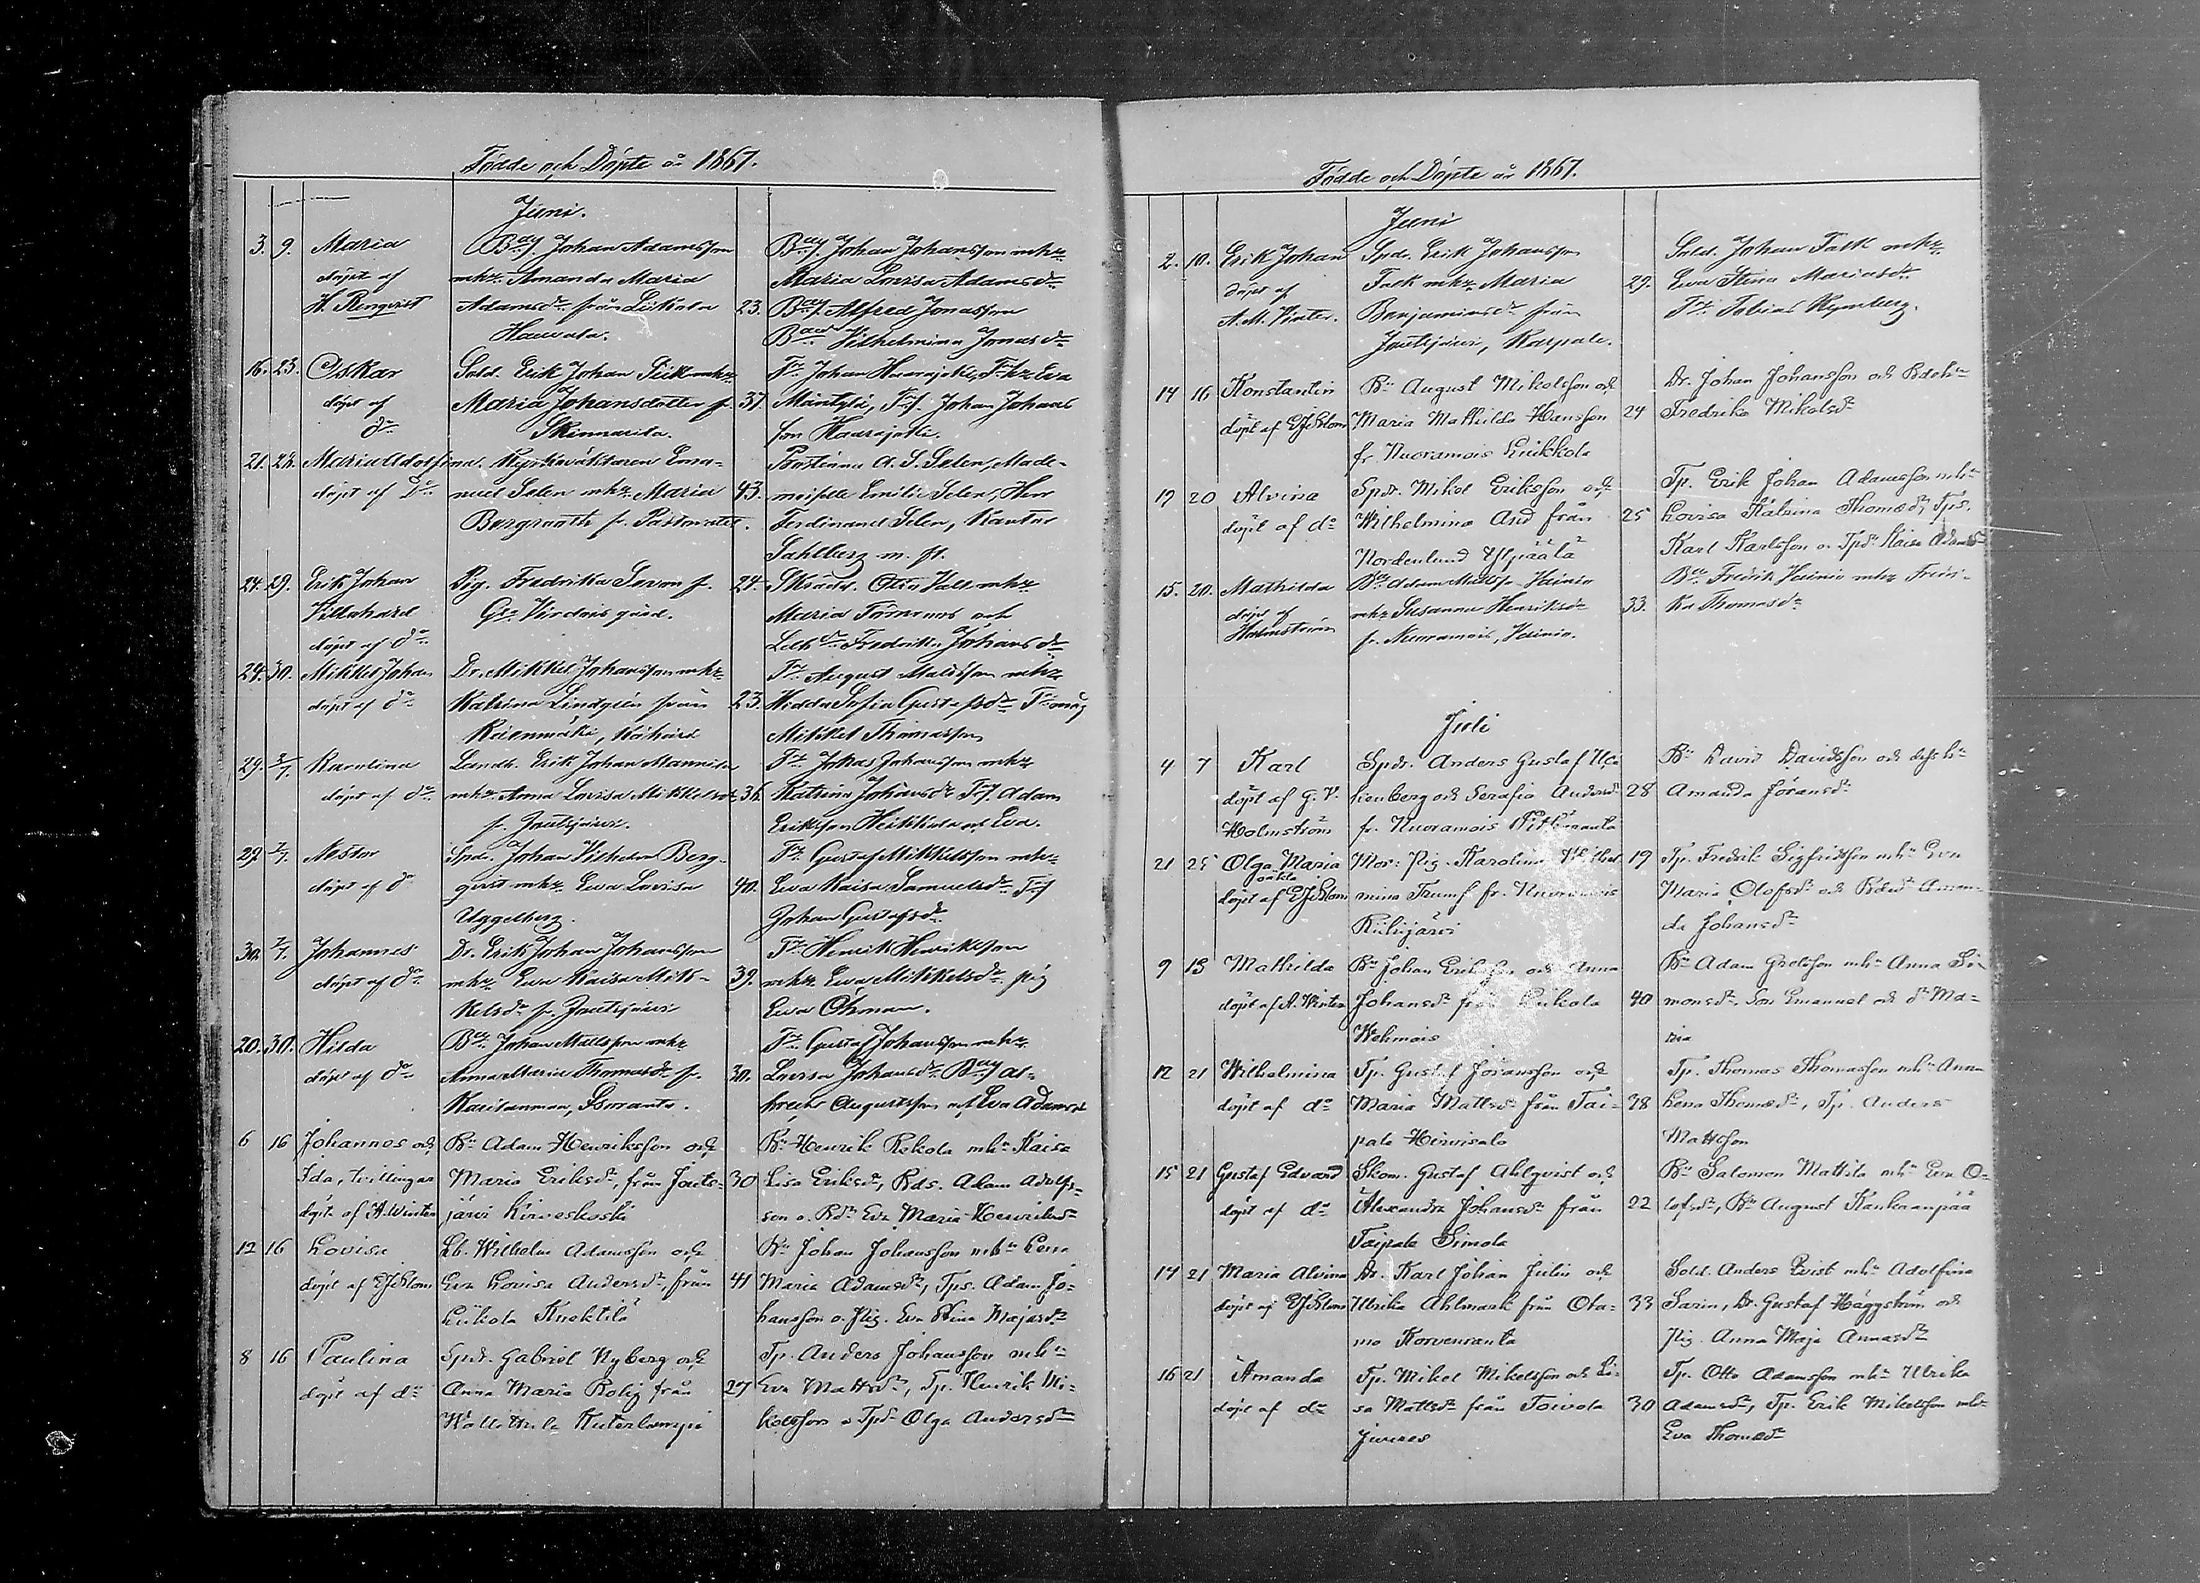 Födde och Döpte år 1867.
Juni.
3. 9. Maria
döpt af
H. Renqvist
Johan Adamsson
mhu Amanda Maria
Adamsdr från Liikola
Hauvala.
Johan Johansson mhu
Maria Lovisa Adamsdr
23. Alfred Jonasson
Vilhelmina Jonasdr
16. 23. Oskar
döpt af
do
Sold. Erik Johan
Maria Johansdotter fr
Skinnarila.
Johan
37. Mäntylä, Johan Johans
son
21. 24. Maria Adolfina
döpt af Do
Kyrkoväktaren Ema-
nuel Selen mhu Maria
Bergroth fr. Pastoratet.
A. S. Selen, Made-
43. moiselle Emilie Selen, Herr
Ferdinand Selen, Kantor
Sahlberg m. fl.
24. 29. Erik Johan
döpt af do
Pig. Fredrika Savon fr.
24. Otto
Maria Törnroos och
Fredrika Johansdr
24. 30. Mikkel Johan
döpt af do
Dr. Mikkel Johansson mhu
Katrina Lindgrén från
August Mattsson mhu
23. Hedda Sofia Gustafsdr
Mikkel Thomasson
29. 2/7. Karolina
döpt af do
Landb. Erik Johan Mannila
mhu Anna Lovisa Mikkelsdr
fr. Joutsjärvi.
Johansson mhu
36. Katrina Johansdr Adam
Eriksson Heikkila och Eva.
29 7/7. Nestor
döpt af do
Spdr. Johan Vilhelm Berg-
qvist mhu Eva Lovisa
Uggelberg.
Gustaf Mikkelsson mhu
40. Eva Kaisa Samuelsdr
Johan Gustafsdr
30. 7/7. Johannes
döpt af do
Dr. Erik Johan Johansson
mhu Eva Kaisa Mik-
kelsdr fr. Joutsjärvi
Henrik Henriksson
39. mhu Eva Mikkelsdr pig
Eva Öhman.
20. 30. Hilda
döpt af do
Johan Mattsson mhu
Anna Maria Thomasdr fr.
Gustaf Johansson mhu
30. Lovisa Johansdr
Augustsson och Eva Adamsdr
6 16 Johannes och
Ida, tvillingar
döpt. af A. Winter
Bn Adam Henriksson och
Maria Eriksdr, från Jouts-
järvi Kirveskoski
Bn Henrik Rekola mhu Kaisa
30 Lisa Eriksdr, Bds. Adam Adolfs-
son o. Bdr Eva Maria Henriksdr
12 16 Lovisa
döpt af
Lb. Wilhelm Adamsson och
Eva Lovisa Andersdr, från
Liikola Knektilä
Johan Johansson mhu Lena
41 Maria Adamsdr, Tps. Adam Jo-
hansson o. Pig. Eva Stina Majasdr
8 16 Paulina
döpt af do
Spdr. Gabriel Nyberg och
Anna Maria Rolig från
Tp. Anders Johansson mhu
27 Eva Mattsdr, Tp. Henrik Mi-
kelsson o Tpdr Olga Andersdr
Födde och Döpte år 1867.
Juni
2. 10. Erik Johan
döpt af
A. M. Vinter.
Spdr. Erik Johansson
Falk mhu Maria
Benjaminsdr från
Joutsjärvi, Karpale.
Sold. Johan Falk mhu
29. Eva Stina Mariasdr
Tobias Nymberg.
14 16 Konstantin
döpt af
Bn August Mikelsson och
Maria Mathilda Hansson
fr. Nuoramois Liikkola
Dr. Johan Johansson och
24 Fredrika Mikelsdr
19 20 Alvina
döpt af do
Spdr. Mikel Eriksson och
Wilhelmina And från
Nordenlund Ylipäälä
Tp. Erik Johan Adamsson mhu
25 Lovisa Katrina Thomasdr, Tps.
Karl Karlsson o. Tpdr Kaisa Adamsdr
15. 20. Mathilda
döpt af
Holmström
Adam Mattss. Heinio
mhu Susanna Henriksdr
fr. Nuoramois, Heinio.
Fredrik Heinio mhu Fredri-
33. ka Thomasdr
Juli
4 7 Karl
döpt af G. V.
Holmström
Spdr. Anders Gustaf
och Serafia Andersdr
fr. Nuoramois Pitkäranta
Bn David Davidsson och dess hu
28 Amanda Göransdr
21 25 Olga Maria
oäkta
döpt af
Mor: Pig. Karolina Wilhel-
mina Trumf fr. Nuoramois
Kiilijärvi
19 Tp. Fredrik Sigfridsson mhu Eva
Maria Olofsdr och Aman-
da Johansdr
9 13 Mathilda
döpt af A. Winter
Bn Johan Eriksson och Anna
Johansdr från Liikola
Wehmais
Bn Adam Grelsson mhu Anna Si-
40 monsdr, Son Emanuel och dr Ma-
ria
12 21 Wilhelmina
döpt af do
Tp. Gustaf Göransson och
Maria Mattsdr från Tai-
pale Hirvisalo
Tp. Thomas Thomasson mhu Anna
38 Lena Thomasdr, Tp. Anders
Mattsson
15 21 Gustaf Edvard
döpt af do
Skom. Gustaf Ahlqvist och
Alexandra Johansdr från
Taipale Simola
Bn Salomon Mattila mhu Eva O-
22 lofsdr, Bn August Kankaanpää
14 21 Maria Alvina
döpt af
Dr. Karl Johan Julin och
Ulrika Ahlmark från Ota-
mo Korvenranta
Sold. Anders Qvist mhu Adolfina
33 Sarin, Dr. Gustaf Häggström och
Pig. Anna Maja Annasdr
16 21 Amanda
döpt af do
Tp. Mikel Mikelsson och Li-
sa Mattsdr från Toivola
Tp. Otto Adamsson mhu Ulrika
30 Adamsdr, Tp. Erik Mikelsson mhu
Eva Thomasdr